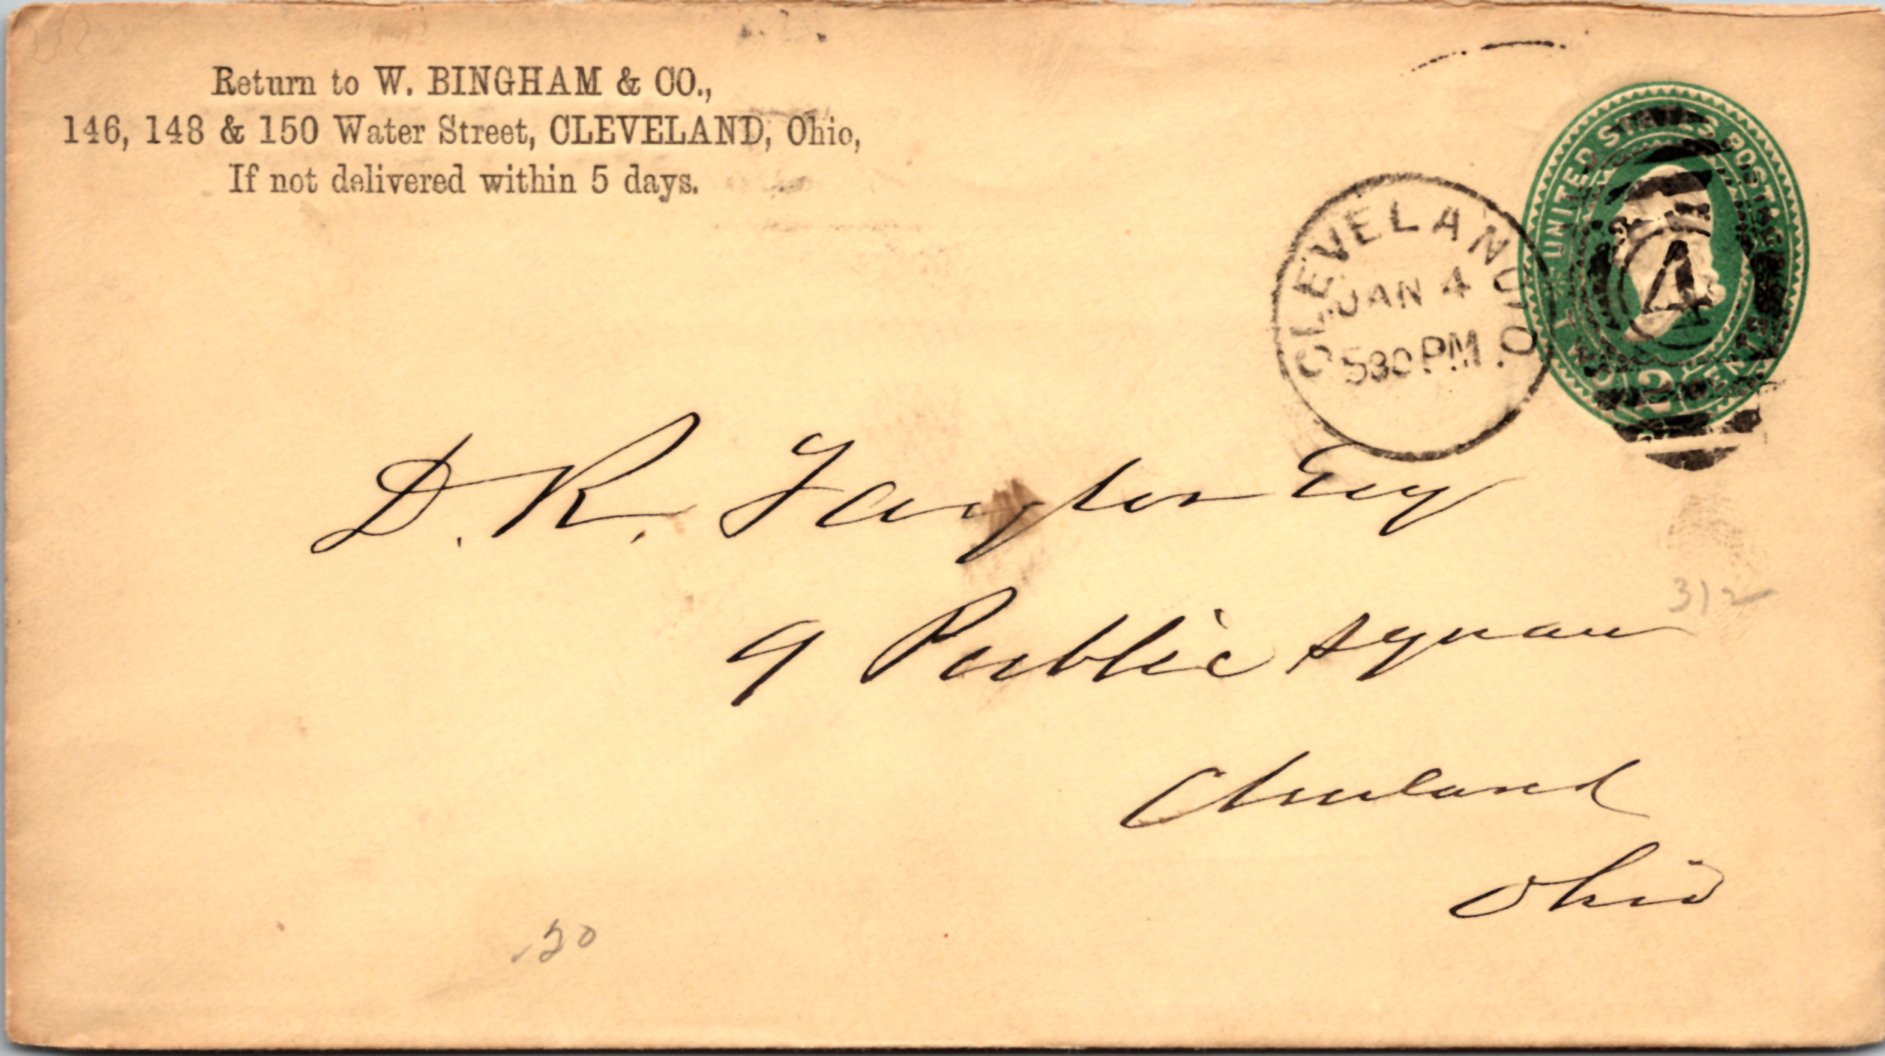 Return to W. BINGHAM & CO.,
146, 148 & 150 Water Street, CLEVELAND, Ohio,
If not delivered within 5 days.
UNITED STATES POSTAGE
2 CENTS
CLEVELAND, O.
JAN 4
530 PM
4
D. R. Taylor Esq
9 Public Square
Cleveland
Ohio
312
.20